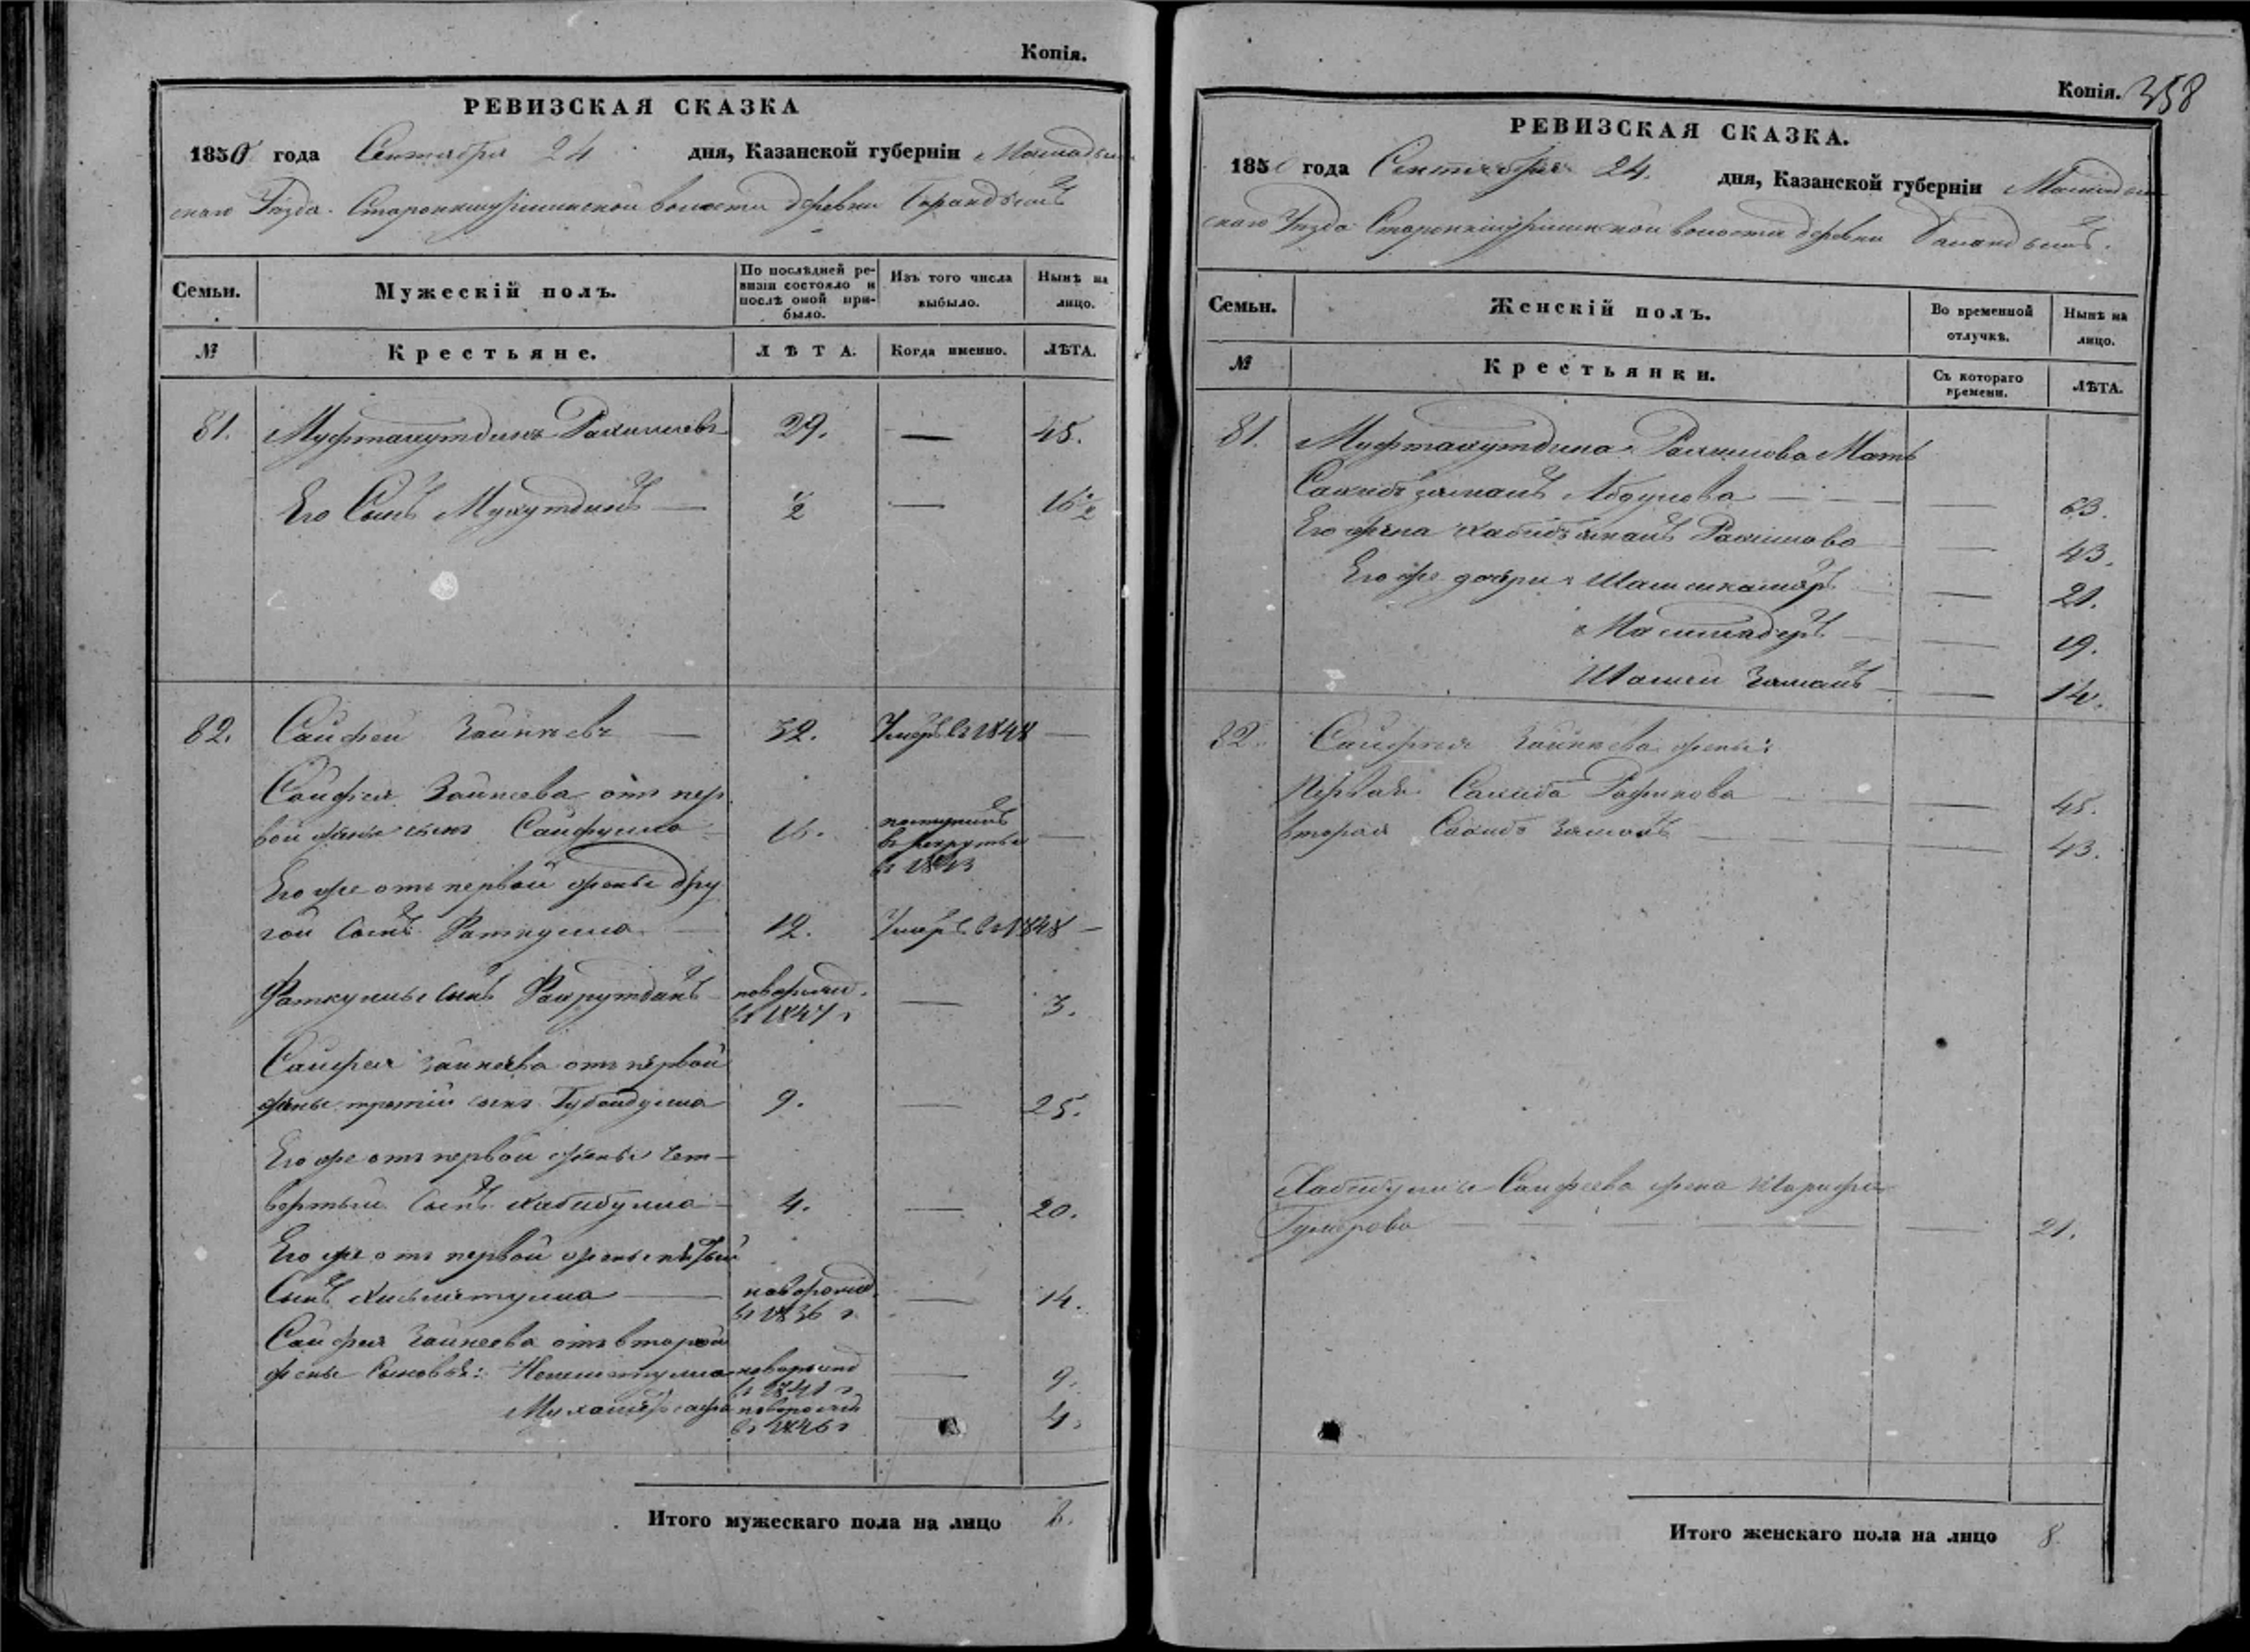 Копія.
РЕВИЗСКАЯ СКАЗКА
1850 года Сентября 24 дня, Казанской губерніи Мамадыш
скаго Уѣзда. Старокишурминской волости деревни
Семьи.
Мужескій полъ.
По послѣдней ре-
визіи состояло и
послѣ оной при-
было.
Изъ того числа
выбыло.
Нынѣ на
лицо.
№
Крестьяне.
ЛѢТА.
Когда именно.
ЛѢТА.
81. Муфтахутдинъ Рахимовъ 29. — 45.
Его Сынъ Мухутдинъ — ½ — 16½
82. Сайфей Зайнѣевъ — 32. Умеръ въ 1848 —
Сайфея Зайнеева отъ пер
вой жены сынъ Сайфулла 16. поступилъ
въ рекруты —
въ 1843
Его же отъ первой жены дру
гой Сынъ Фаткулла — 12. Умеръ въ 1848 —
Фаткуллы сынъ Фахрутдинъ — новорожд.
въ 1847 г — 3.
Сайфея Зайнеева отъ первой
жены третій сынъ Губайдулла 9. — 25.
Его же отъ первой жены чет-
вертый Сынъ Хабибулла — 4. — 20.
Его же отъ первой жены пятый
Сынъ Хисметулла — новорожд.
въ 1836 г. — 14.
Сайфея Зайнеева отъ второй
жены Сыновья: Неметулла новорожд
въ 1841 г — 9.
новорожд
въ 1846 г — 4.
Итого мужескаго пола на лицо
Копія. 358
РЕВИЗСКАЯ СКАЗКА.
1850 года Сентября 24. дня, Казанской губерніи Мамадыш
скаго Уѣзда Старокишурминской волости деревни
Семьи.
Женскій полъ.
Во временной
отлучкѣ.
Нынѣ на
лицо.
№
Крестьянки.
Съ котораго
времени.
ЛѢТА.
81. Муфтахутдина Рахимова Мать
Сахибзяманъ Абдулова — — 63.
Его жена Хабибзяманъ Рахимова — 43.
Его же дочери: Шамсикамаръ — 21.
— 19.
Шамси Зяманъ — — 14.
82. Сайфея Зайнѣева жены:
Первая Сахиба Рафикова — — 45.
вторая Сахибъ Зяманъ — — 43.
Хабибуллы Сайфеева жена Шарифа
Гумерова — — 21.
Итого женскаго пола на лицо 8.